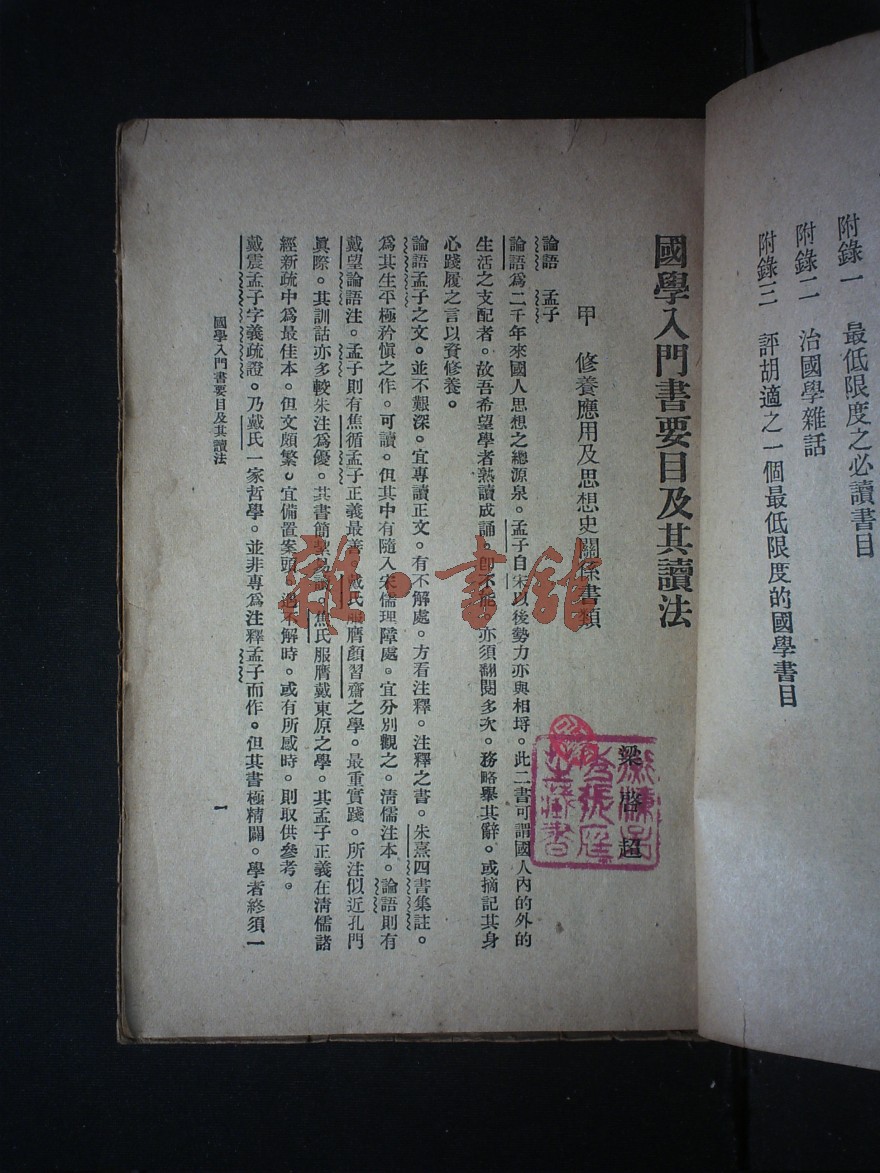 附錄一 最低限度之必讀書目
附錄二 治國學雜話
附錄三 評胡適之一個最低限度的國學書目
國學入門書要目及其讀法
梁啓超
甲 修養應用及思想史關係書類
論語 孟子
論語爲二千年來國人思想之總源泉。孟子自宋以後勢力亦與相埒。此二書可謂國人內的外的
生活之支配者。故吾希望學者熟讀成誦。卽不能。亦須翻閱多次。務略舉其辭。或摘記其身
心踐履之言以資修養。
論語孟子之文。並不艱深。宜專讀正文。有不解處。方看注釋。注釋之書。朱熹四書集註。
爲其生平極矜愼之作。可讀。但其中有隨入宋儒理障處。宜分別觀之。淸儒注本。論語則有
戴望論語注。孟子則有焦循孟子正義最善。戴氏服膺顏習齋之學。最重實踐。所注似近孔門
眞際。其訓詁亦多較朱注爲優。其書簡絜易讀。焦氏服膺戴東原之學。其孟子正義在淸儒諸
經新疏中爲最佳本。但文頗繁。宜備置案頭。遇不解時。或有所感時。則取供參考。
戴震孟子字義疏證。乃戴氏一家哲學。並非專爲注釋孟子而作。但其書極精闢。學者終須一
國學入門書要目及其讀法
一
雜·書館